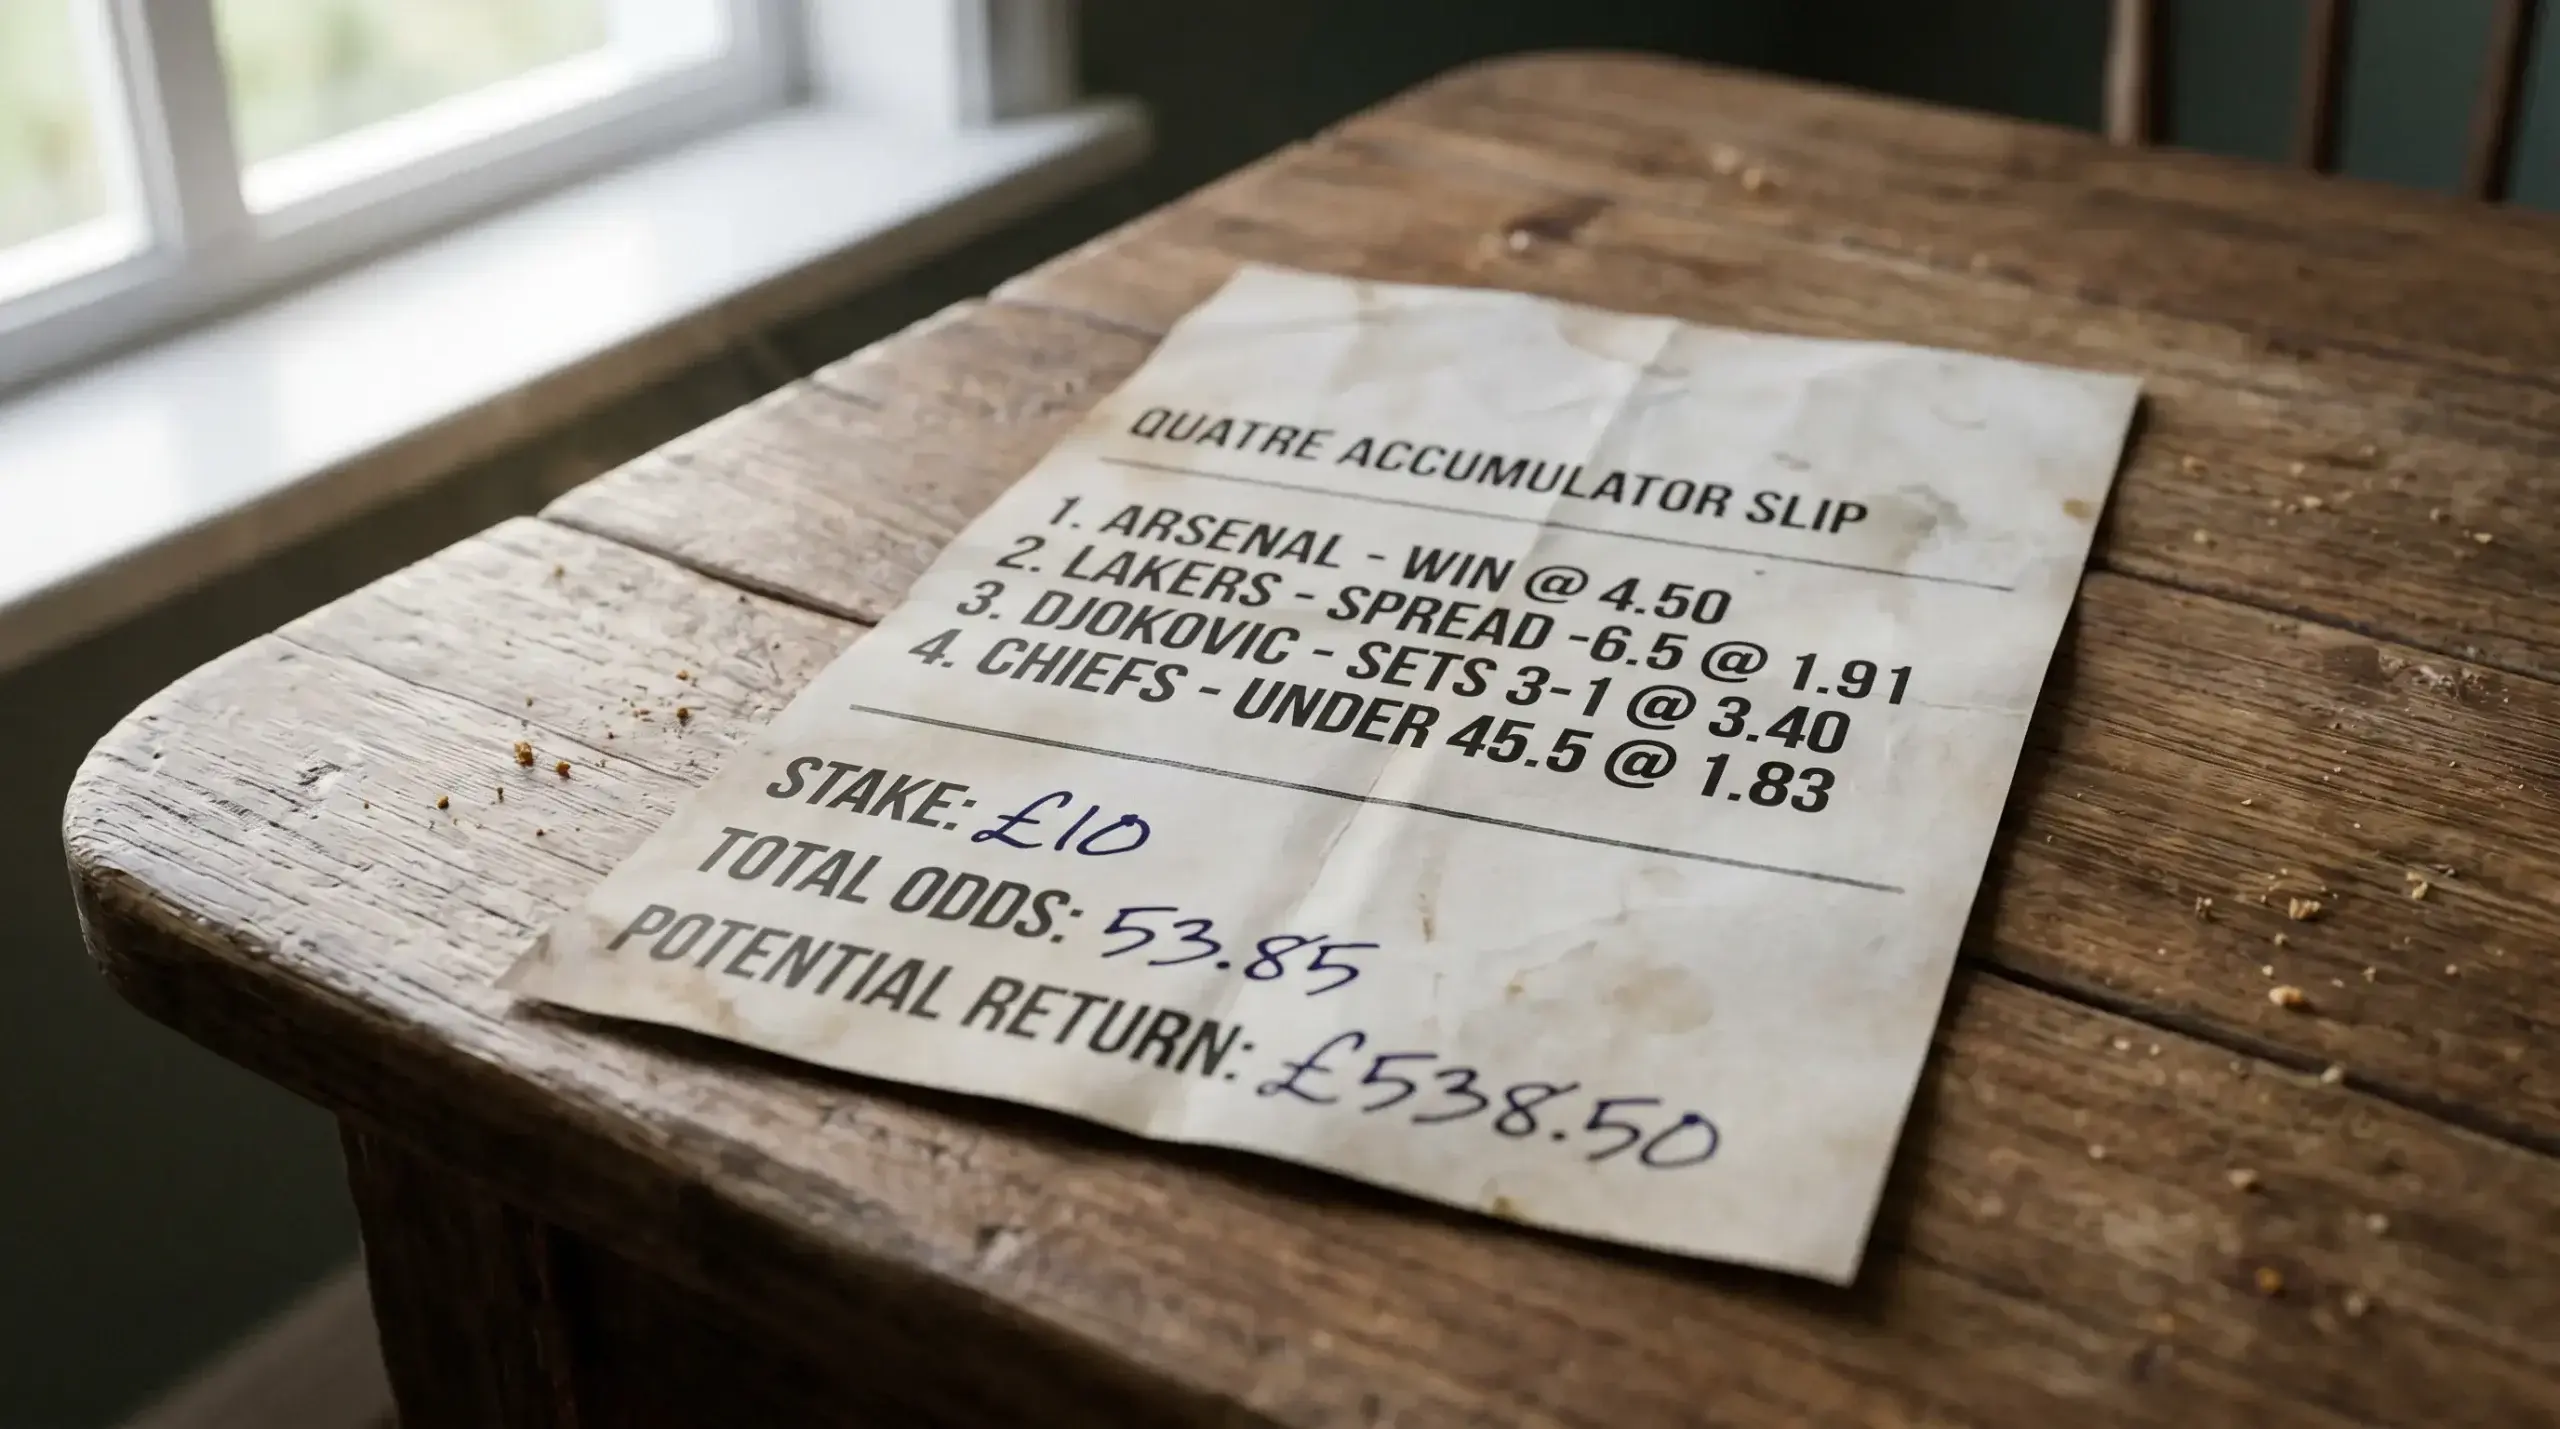 QUATRE ACCUMULATOR SLIP
1. ARSENAL - WIN @ 4.50
2. LAKERS - SPREAD -6.5 @ 1.91
3. DJOKOVIC - SETS 3-1 @ 3.40
4. CHIEFS - UNDER 45.5 @ 1.83
STAKE: £10
TOTAL ODDS: 53.85
POTENTIAL RETURN: £538.50